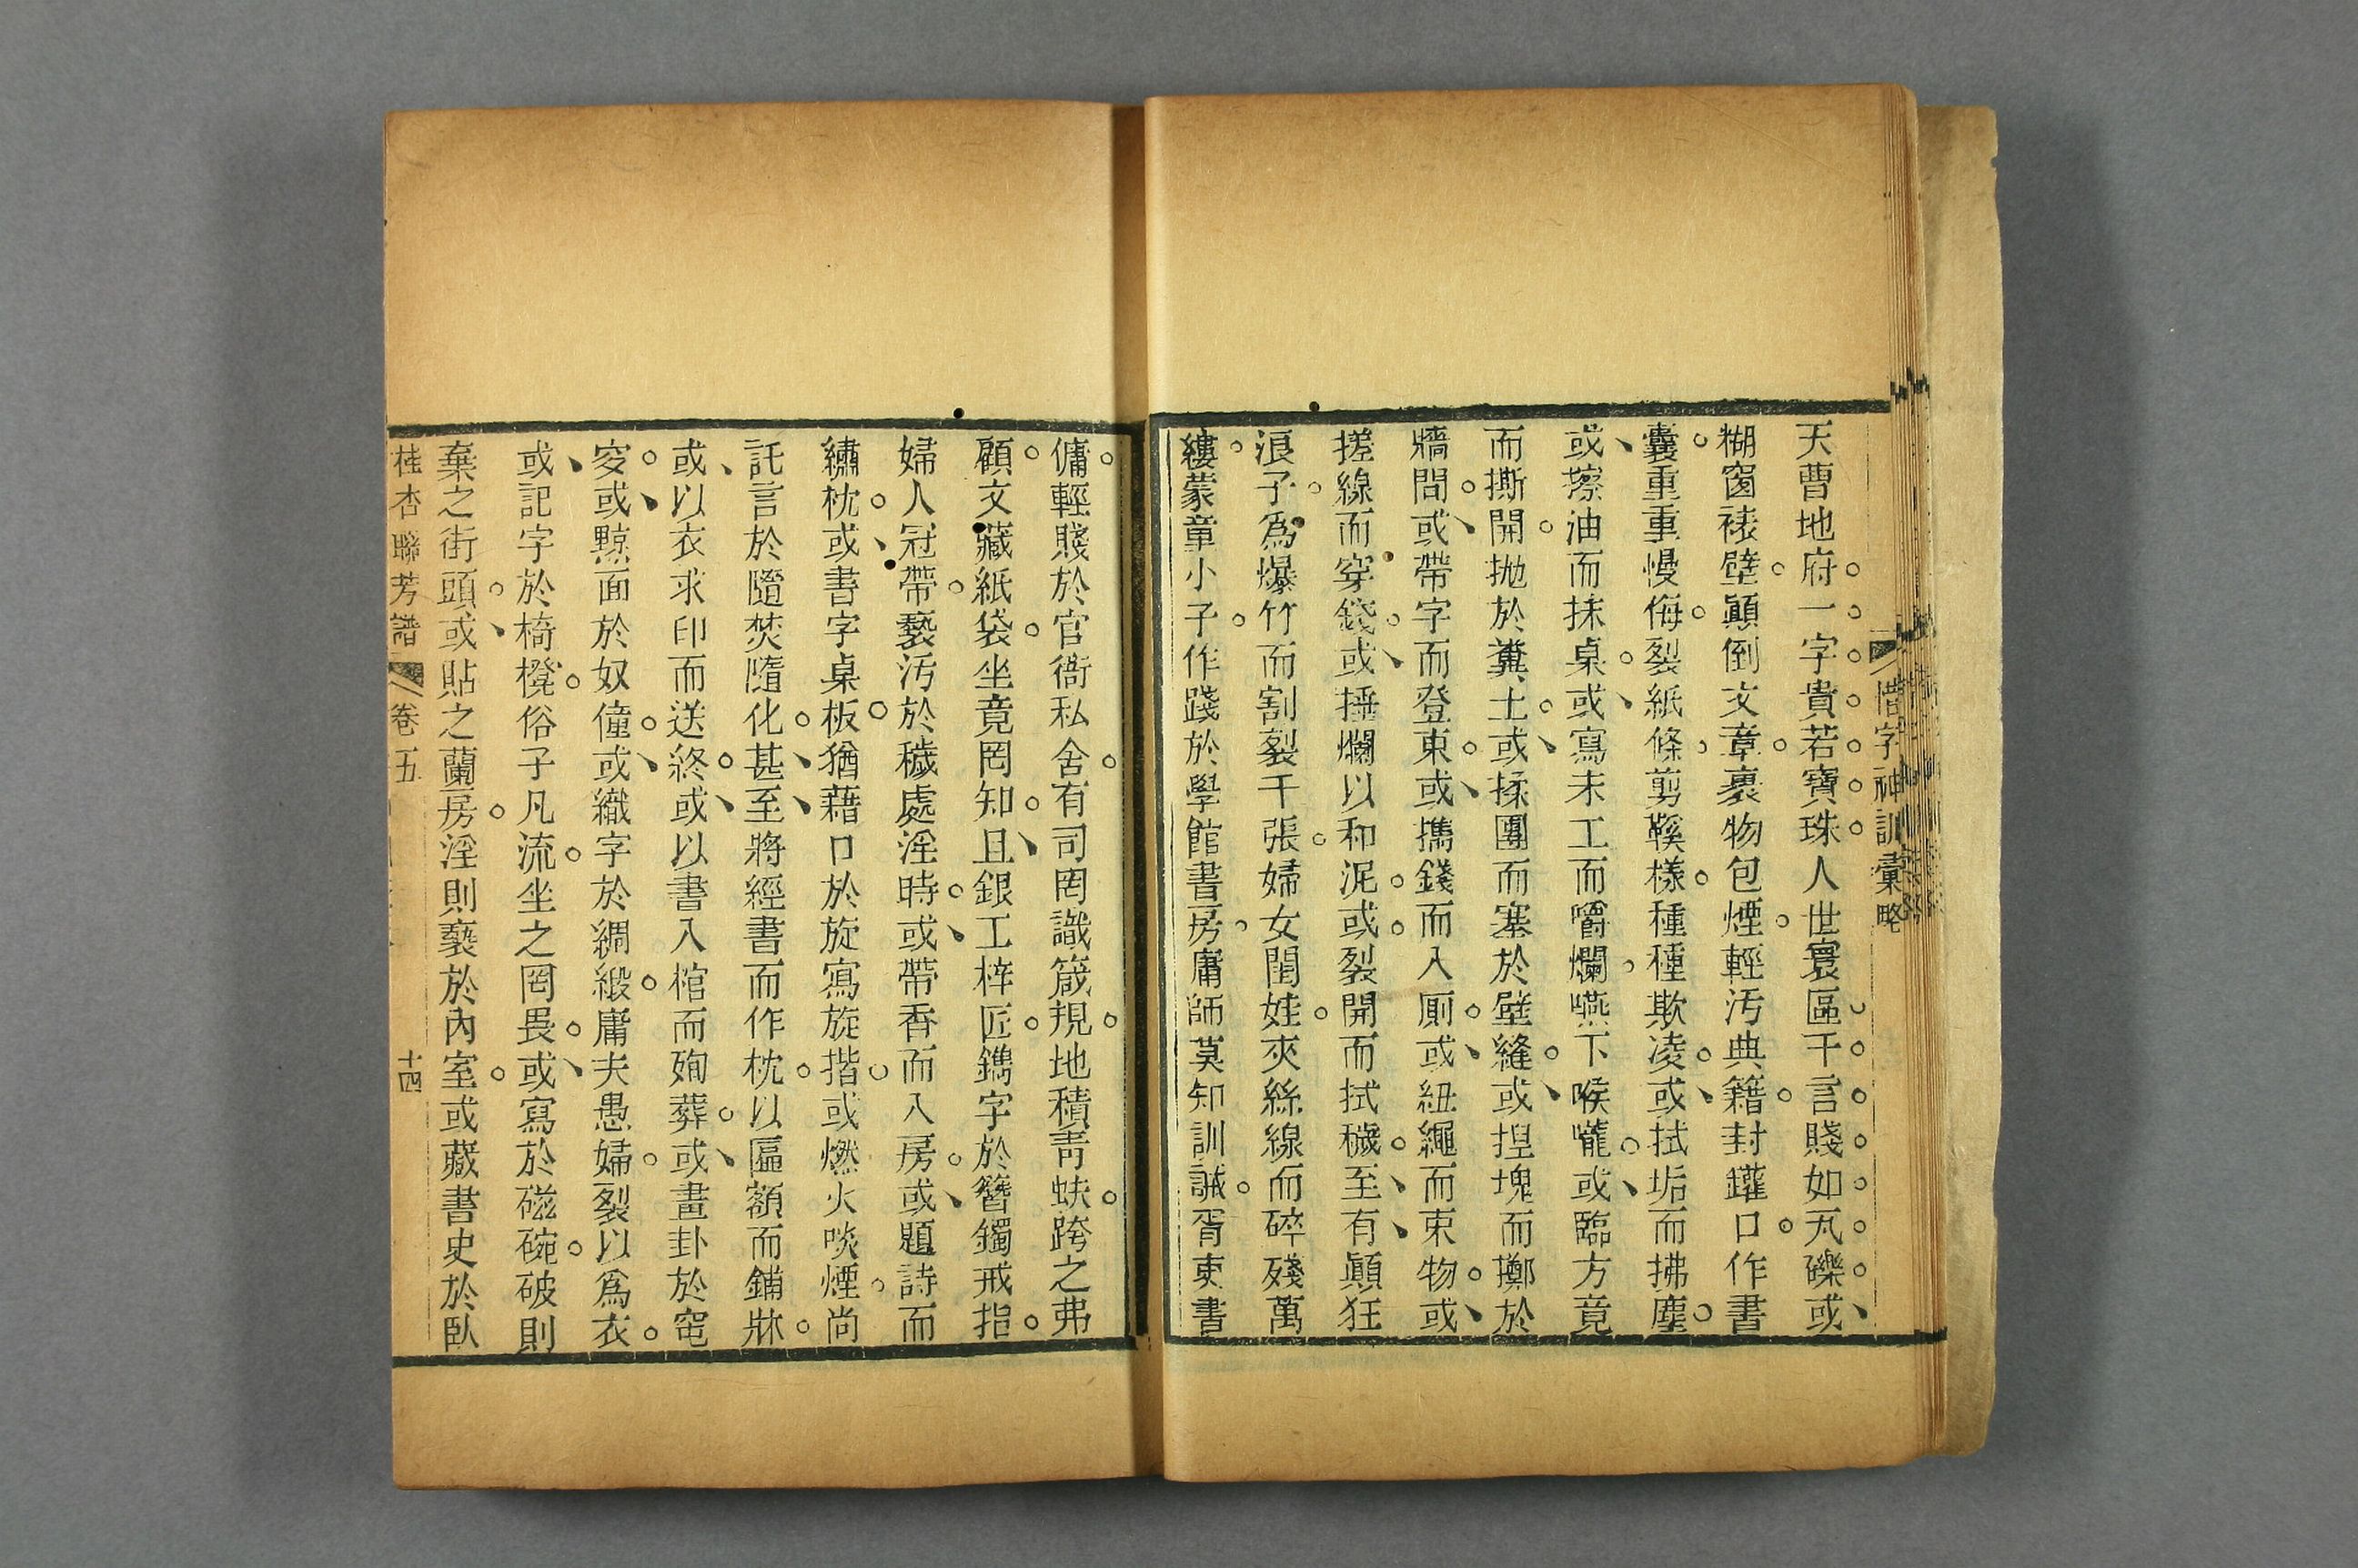 惜字神訓彙略
天曹地府一字貴若寶珠人世寰區千言賤如瓦礫或
糊窗裱壁顚倒文章裹物包煙輕汚典籍封鑵口作書
囊重重慢侮裂紙條剪鞵樣種種欺凌或拭垢而拂塵
或擦油而抹桌或寫未工而嚼爛嚥下喉嚨或臨方竟
而撕開抛於糞土或揉團而塞於壁縫或揑塊而擲於
牆間或帶字而登東或攜錢而入廁或紐繩而束物或
搓線而穿錢或捶爛以和泥或裂開而拭穢至有顚狂
浪子爲爆竹而割裂千張婦女閨娃夾絲線而碎殘萬
縷蒙童小子作踐於學館書房庸師莫知訓誡胥吏書
傭輕賤於官衙私舍有司罔識箴規地積靑蚨跨之弗
顧文藏紙袋坐竟罔知且銀工梓匠鐫字於簪鐲戒指
婦人冠帶褻汚於穢處淫時或帶香而入房或題詩而
繡枕或書字桌板猶藉口於旋寫旋揩或燃火啖煙尚
託言於隨焚隨化甚至將經書而作枕以匾額而鋪牀
或以衣求印而送終或以書入棺而殉葬或畫卦於窀
穸或黥面於奴僮或織字於綢緞庸夫愚婦裂以爲衣
或記字於椅櫈俗子凡流坐之罔畏或寫於磁碗破則
棄之街頭或貼之蘭房淫則褻於內室或藏書史於臥
桂杏聯芳譜 卷五 十四